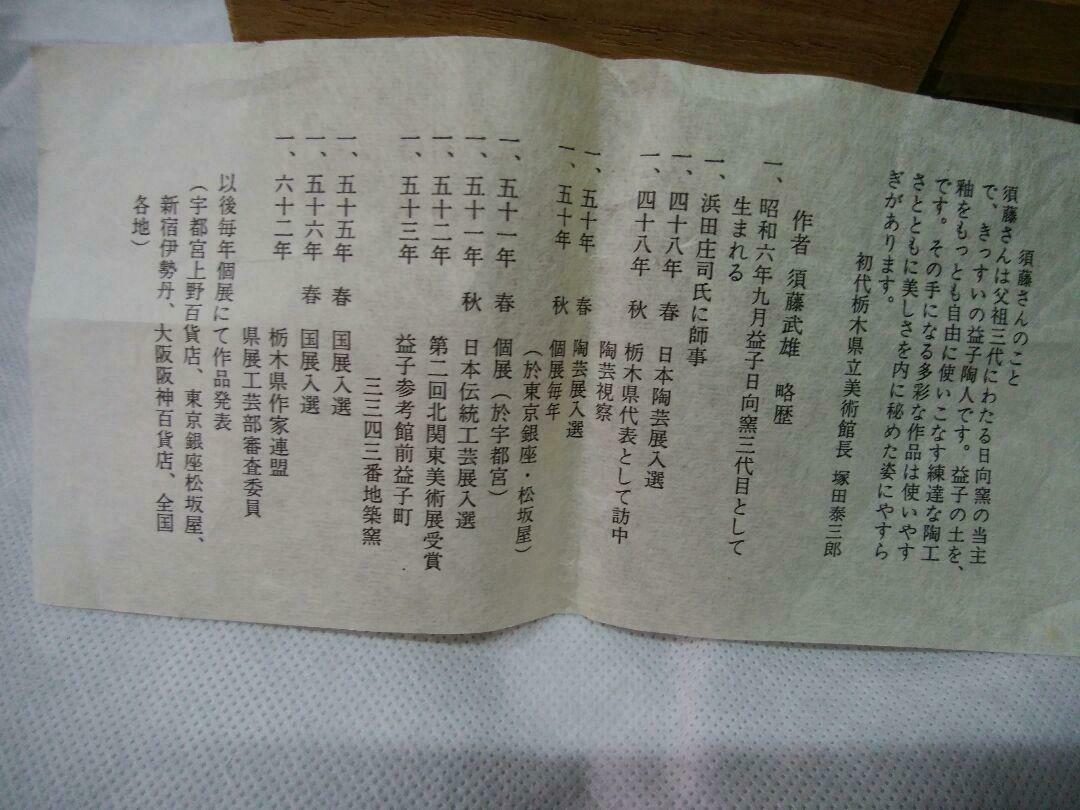 須藤さんのこと
須藤さんは父祖三代にわたる日向窯の当主
で、きっすいの益子陶人です。益子の土を、
釉をもっとも自由に使いこなす練達な陶工
です。その手になる多彩な作品は使いやす
さとともに美しさを内に秘めた姿にやすら
ぎがあります。
初代栃木県立美術館長 塚田泰三郎
作者 須藤武雄 略歴
一、昭和六年九月益子日向窯三代目として
生まれる
一、浜田庄司氏に師事
一、四十八年 春 日本陶芸展入選
一、四十八年 秋 栃木県代表として訪中
陶芸視察
一、五十年 春 陶芸展入選
一、五十年 秋 個展毎年
（於東京銀座・松坂屋）
一、五十一年 春 個展（於宇都宮）
一、五十一年 秋 日本伝統工芸展入選
一、五十二年 第二回北関東美術展受賞
一、五十三年 益子参考館前益子町
三三四三番地築窯
一、五十五年 春 国展入選
一、五十六年 春 国展入選
一、六十二年 栃木県作家連盟
県展工芸部審査委員
以後毎年個展にて作品発表
（宇都宮上野百貨店、東京銀座松坂屋、
新宿伊勢丹、大阪阪神百貨店、全国
各地）